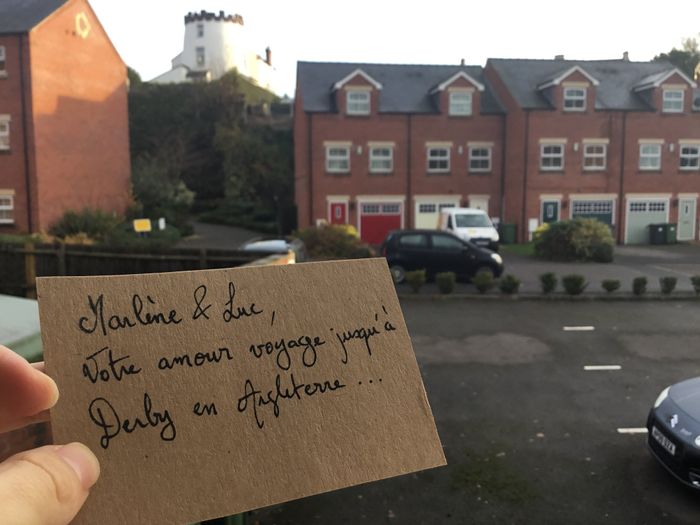 Marlène & Luc,
Votre amour voyage jusqu'à
Derby en Angleterre ...